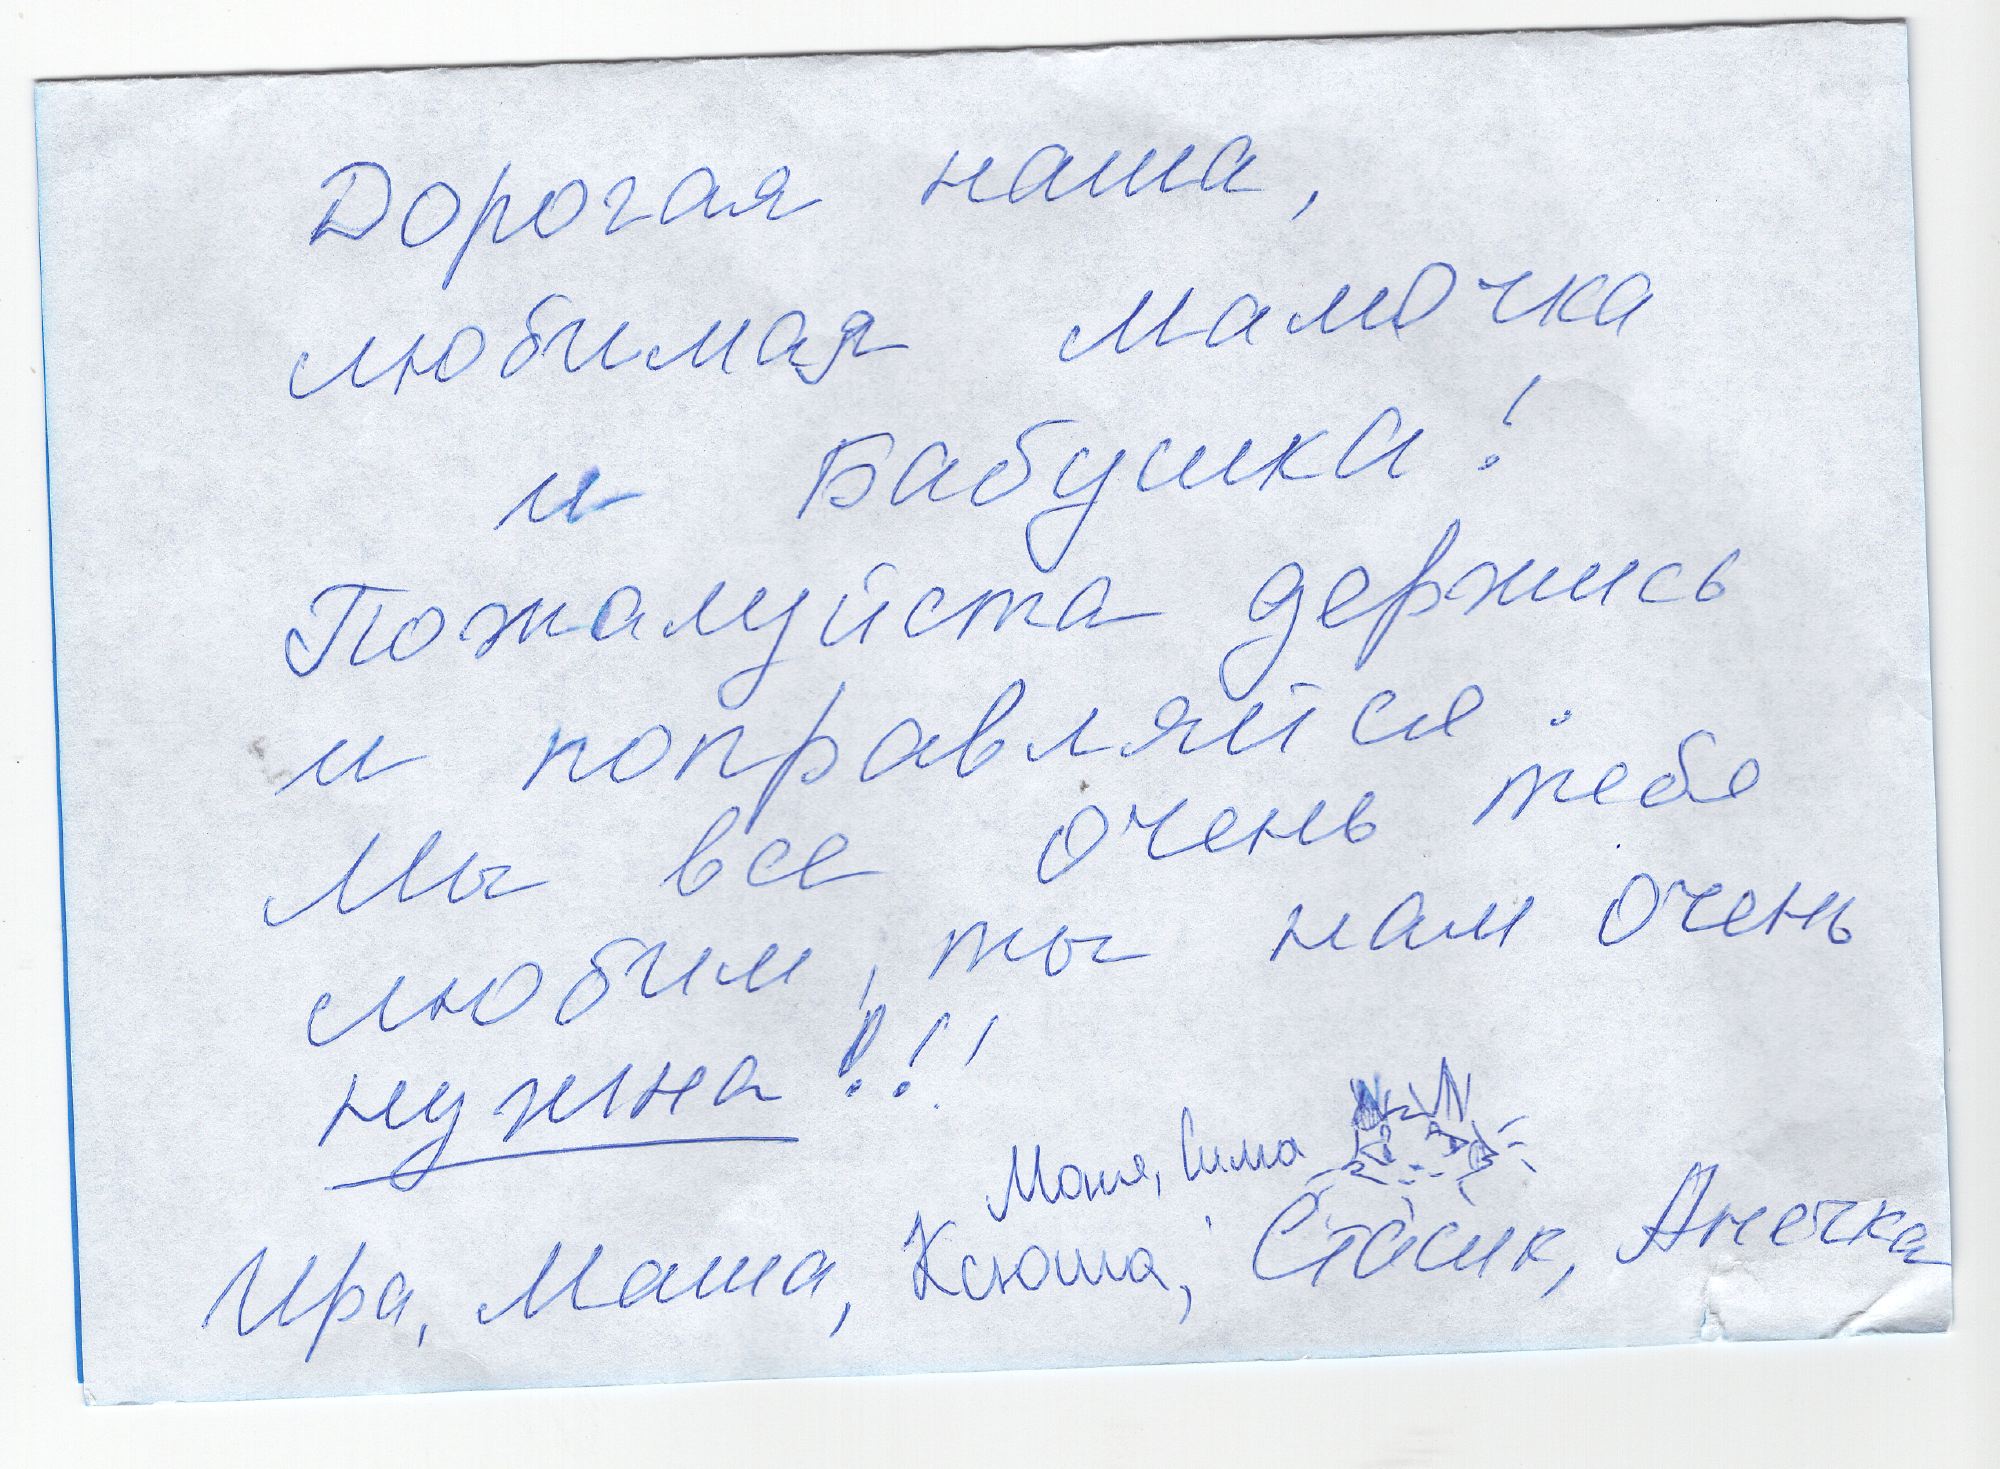 Дорогая наша,
любимая мамочка
и Бабушка!
Пожалуйста держись
и поправляйся.
Мы все очень тебя
любим, ты нам очень
нужна!!!
Маня, Сима
Ира, Маша, Ксюша, Стасик, Анечка